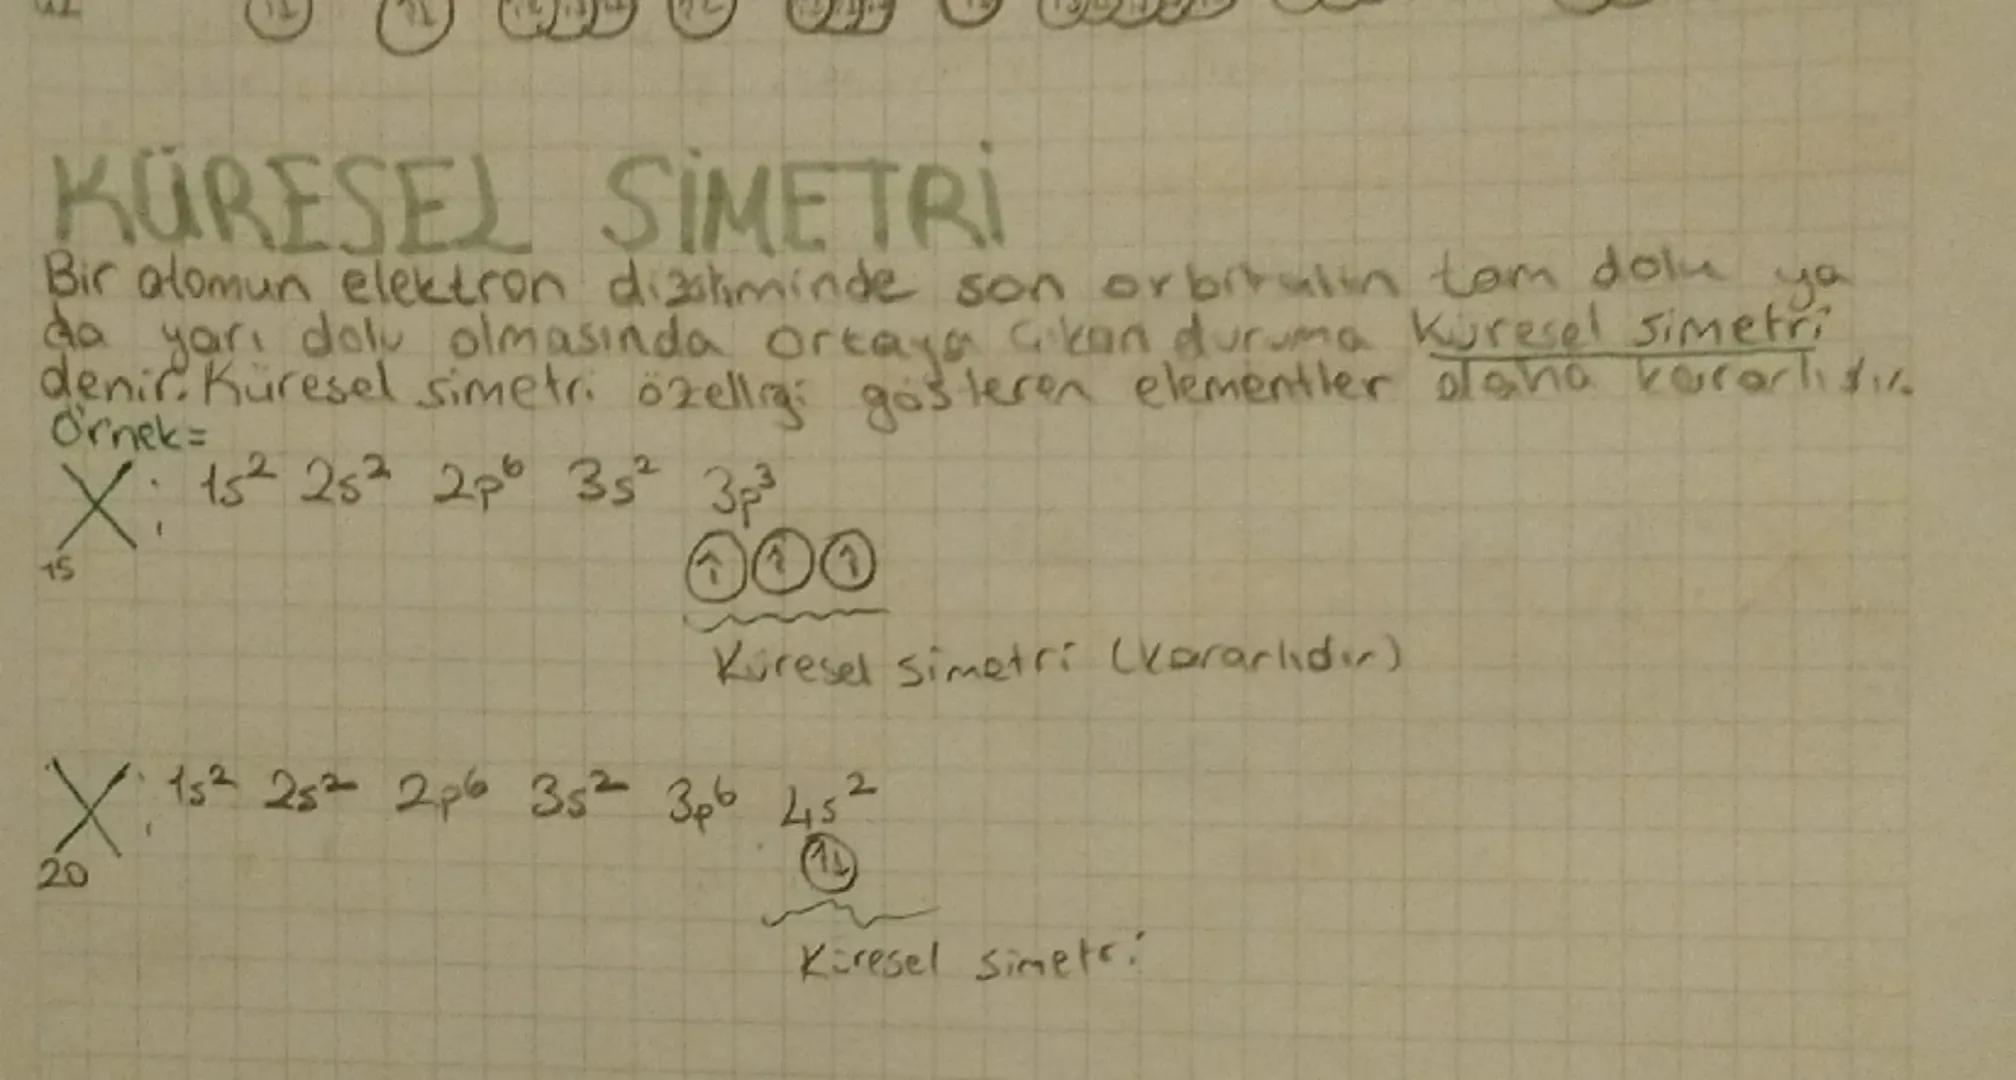 KÜRESEL SİMETRİ
Bir atomun elektron diziliminde son orbitalin tam dolu ya
da yarı dolu olmasında ortaya çıkan duruma Küresel simetri
denir. Küresel simetri özelliği gösteren elementler daha kararlıdır.
Örnek=
X: 1s² 2s² 2p⁶ 3s² 3p³
15
Küresel simetri (kararlıdır)
X: 1s² 2s² 2p⁶ 3s² 3p⁶ 4s²
20
Küresel simetri